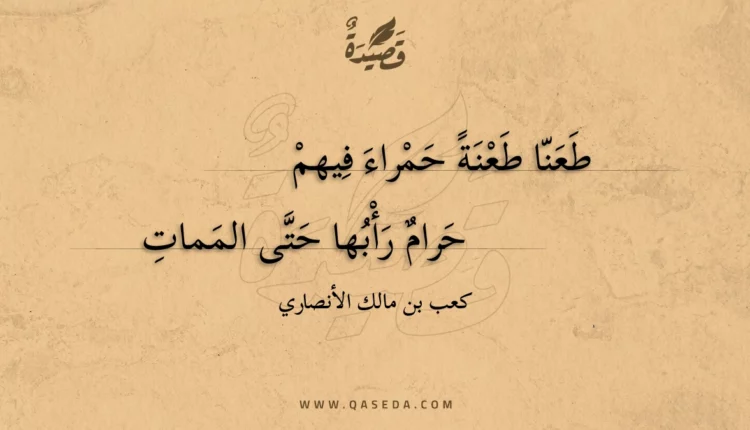 قَصِيْدَةٌ
طَعَنّا طَعْنَةً حَمْراءَ فِيهمْ
حَرامٌ رَأْبُها حَتَّى المَماتِ
كعب بن مالك الأنصاري
WWW.QASEDA.COM